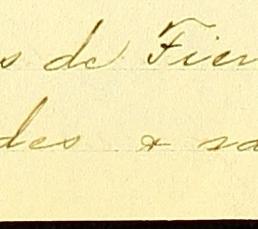 s de Fier
des & sa